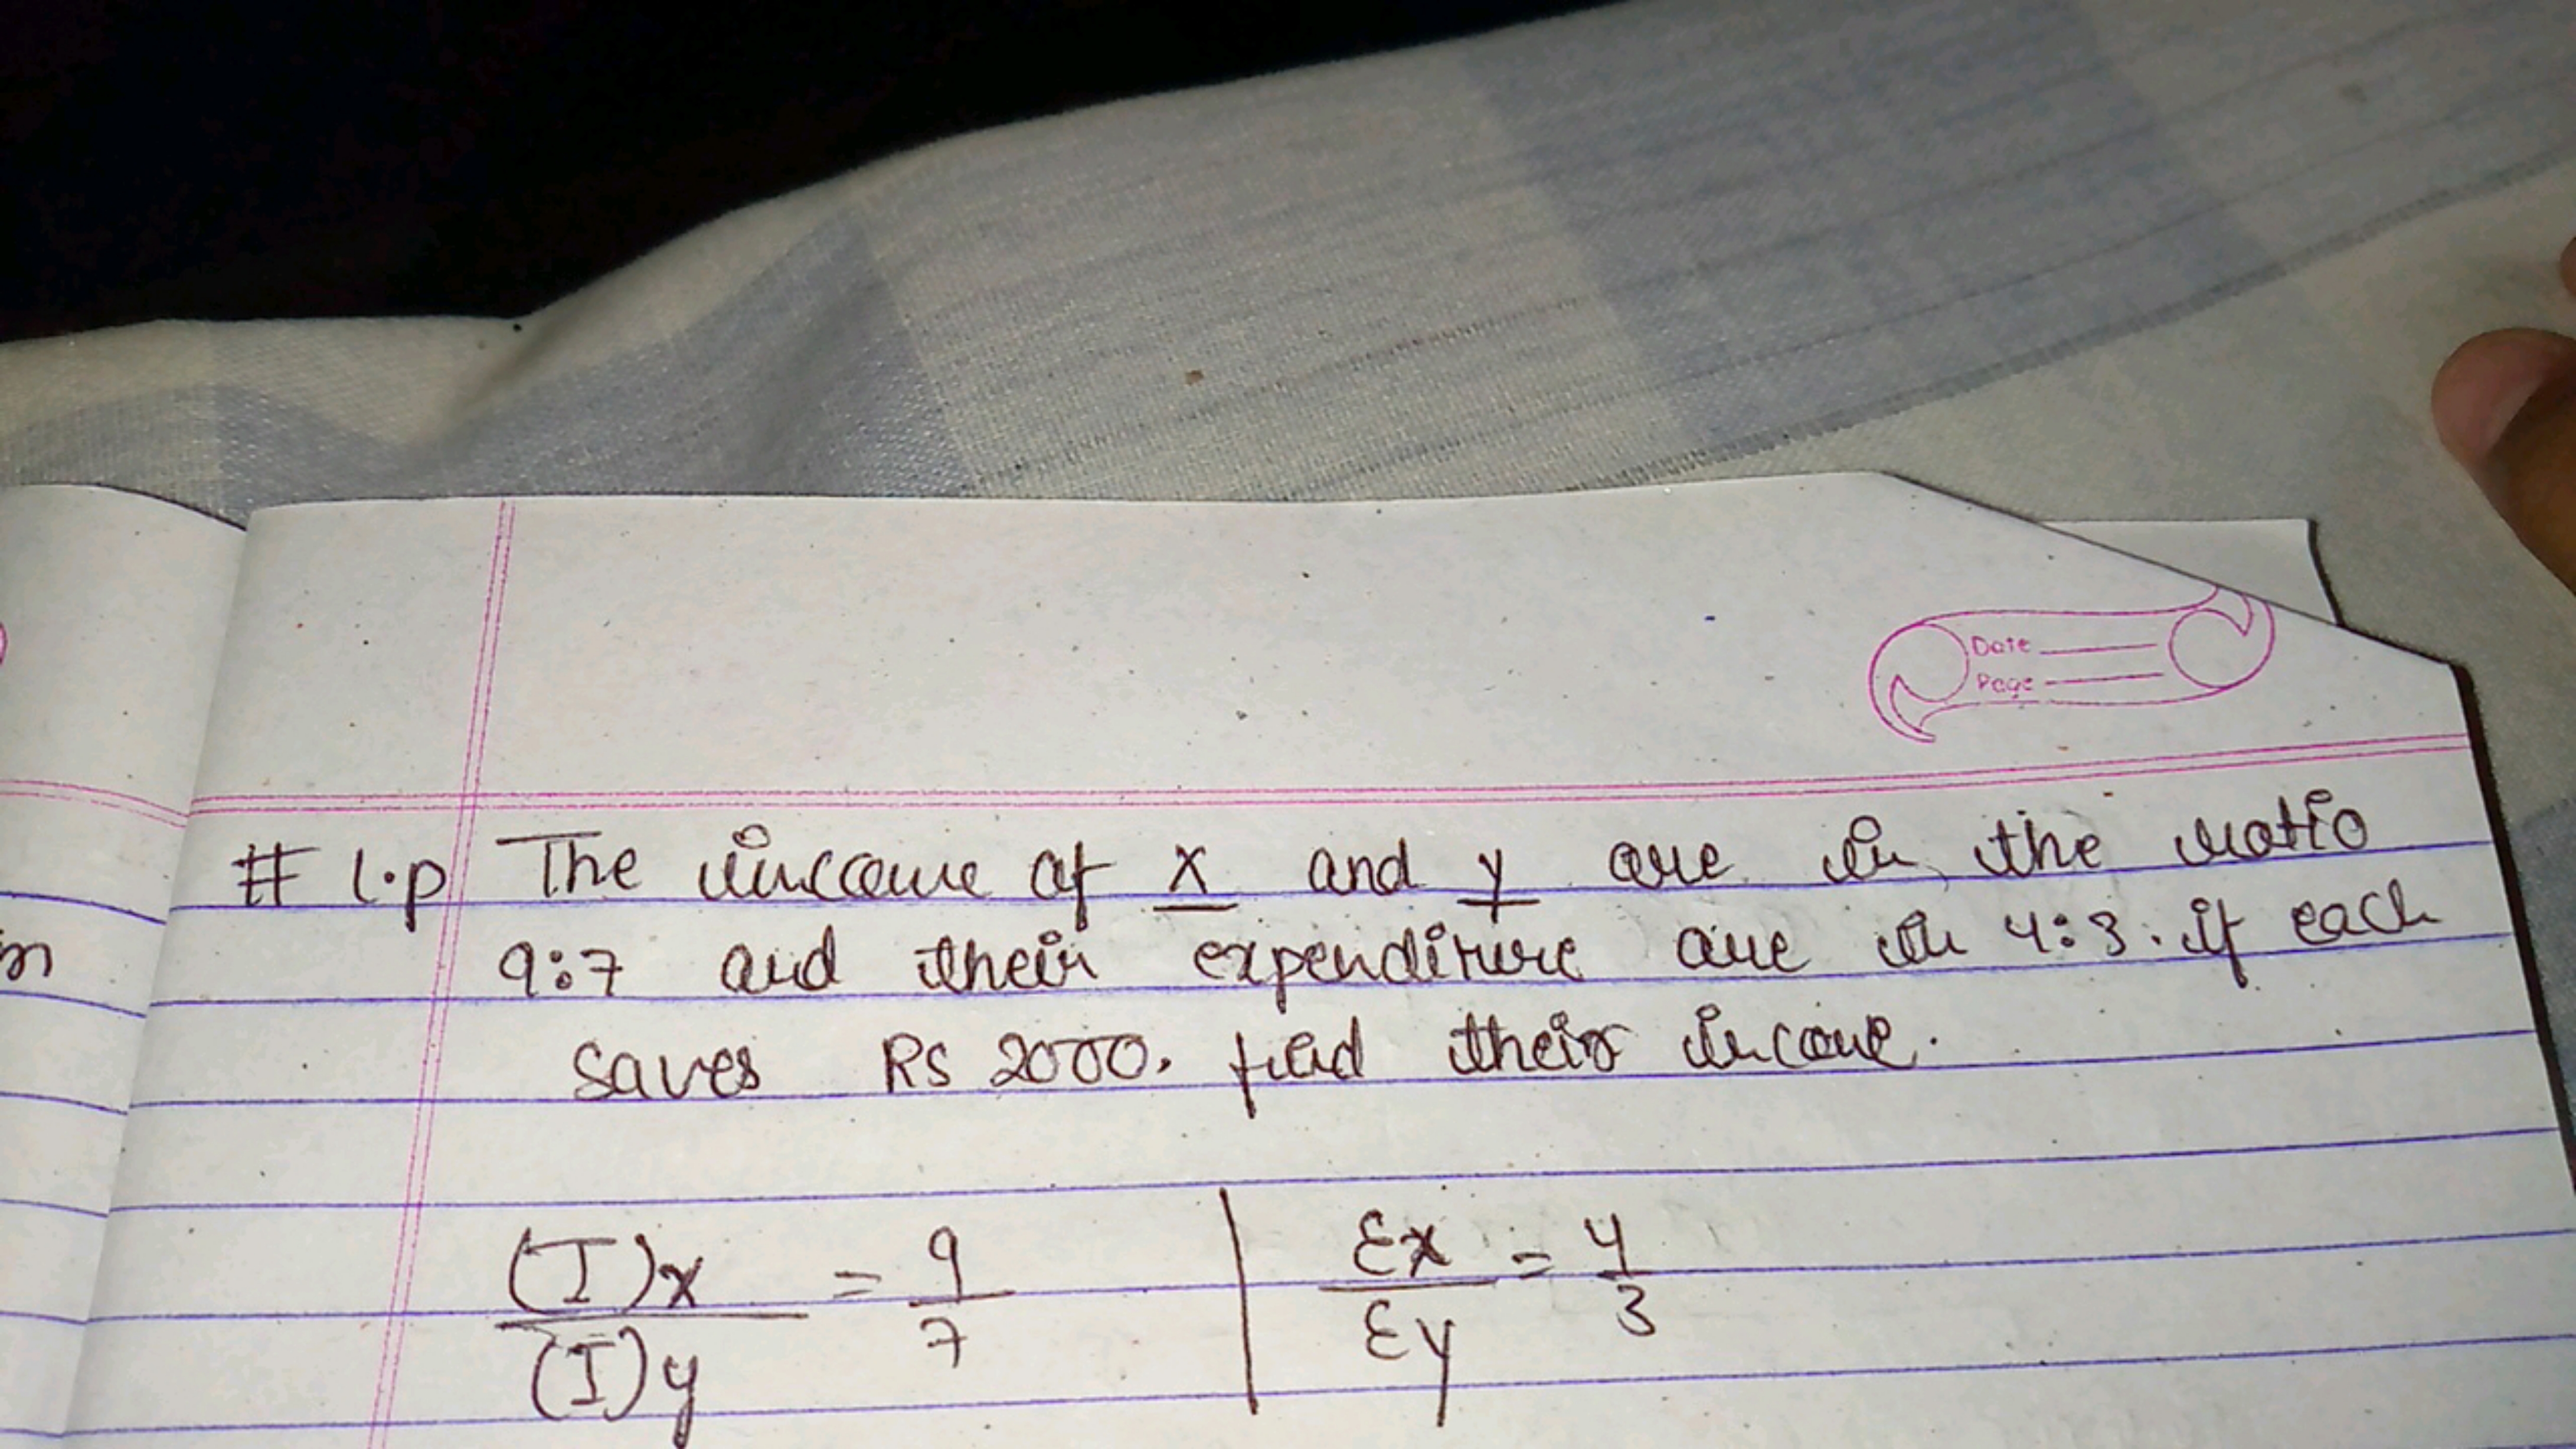 Date
Page
# 1.p The income of x and y are in the ratio
9:7 and their expenditure are in 4:3. if each
saves Rs 2000. find their income.
(I)x / (I)y = 9/7 | Ex / Ey = 4/3
m